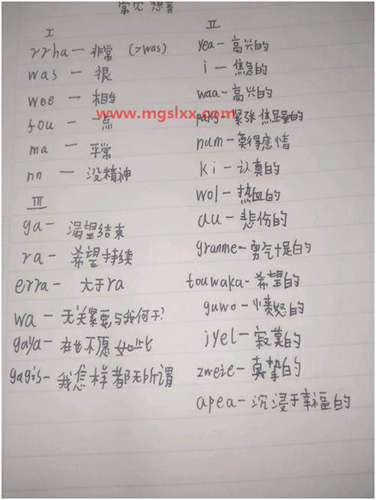 常见想音
I
rrha — 非常 (>was)
was — 很
wee — 相当
fou — 一点
ma — 平常
nn — 没精神
III
ga — 渴望结束
ra — 希望持续
erra — 大于ra
wa — 无关紧要与我何干?
gaya — 在也不愿如此
gagis — 我怎样都无所谓
II
yea — 高兴的
i — 焦急的
waa — 高兴的
紧张
num — 莫得感情
ki — 认真的
wol — 热血的
au — 悲伤的
granme — 勇气十足的
touwaka — 希望的
guwo — 愤怒的
jyel — 寂寞的
zweie — 真挚的
apea — 沉浸于幸福的
www.mgslxx.com